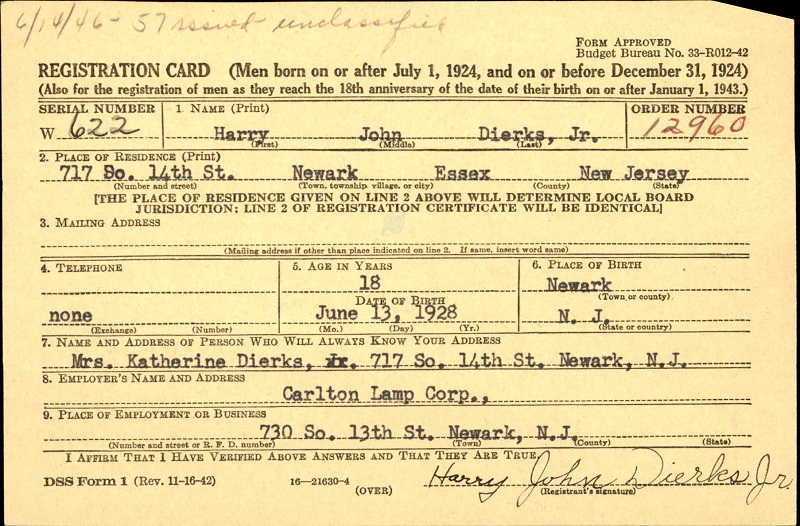 6/14/46 - 57 issued unclassified
FORM APPROVED
Budget Bureau No. 33-R012-42
REGISTRATION CARD (Men born on or after July 1, 1924, and on or before December 31, 1924)
(Also for the registration of men as they reach the 18th anniversary of the date of their birth on or after January 1, 1943.)
SERIAL NUMBER 1. NAME (Print) ORDER NUMBER
W 622 Harry John Dierks, Jr. 12960
(First) (Middle) (Last)
2. PLACE OF RESIDENCE (Print)
717 So. 14th St. Newark Essex New Jersey
(Number and street) (Town, township, village, or city) (County) (State)
[THE PLACE OF RESIDENCE GIVEN ON LINE 2 ABOVE WILL DETERMINE LOCAL BOARD
JURISDICTION; LINE 2 OF REGISTRATION CERTIFICATE WILL BE IDENTICAL]
3. MAILING ADDRESS
(Mailing address if other than place indicated on line 2. If same, insert word same)
4. TELEPHONE 5. AGE IN YEARS 6. PLACE OF BIRTH
18 Newark
DATE OF BIRTH (Town or county)
none June 13, 1928 N. J.
(Exchange) (Number) (Mo.) (Day) (Yr.) (State or country)
7. NAME AND ADDRESS OF PERSON WHO WILL ALWAYS KNOW YOUR ADDRESS
Mrs. Katherine Dierks, 717 So. 14th St. Newark, N.J.
8. EMPLOYER'S NAME AND ADDRESS
Carlton Lamp Corp.,
9. PLACE OF EMPLOYMENT OR BUSINESS
730 So. 13th St. Newark, N.J.
(Number and street or R. F. D. number) (Town) (County) (State)
I AFFIRM THAT I HAVE VERIFIED ABOVE ANSWERS AND THAT THEY ARE TRUE.
DSS Form 1 (Rev. 11-16-42) 16—21630-4 Harry John Dierks Jr.
(OVER) (Registrant's signature)